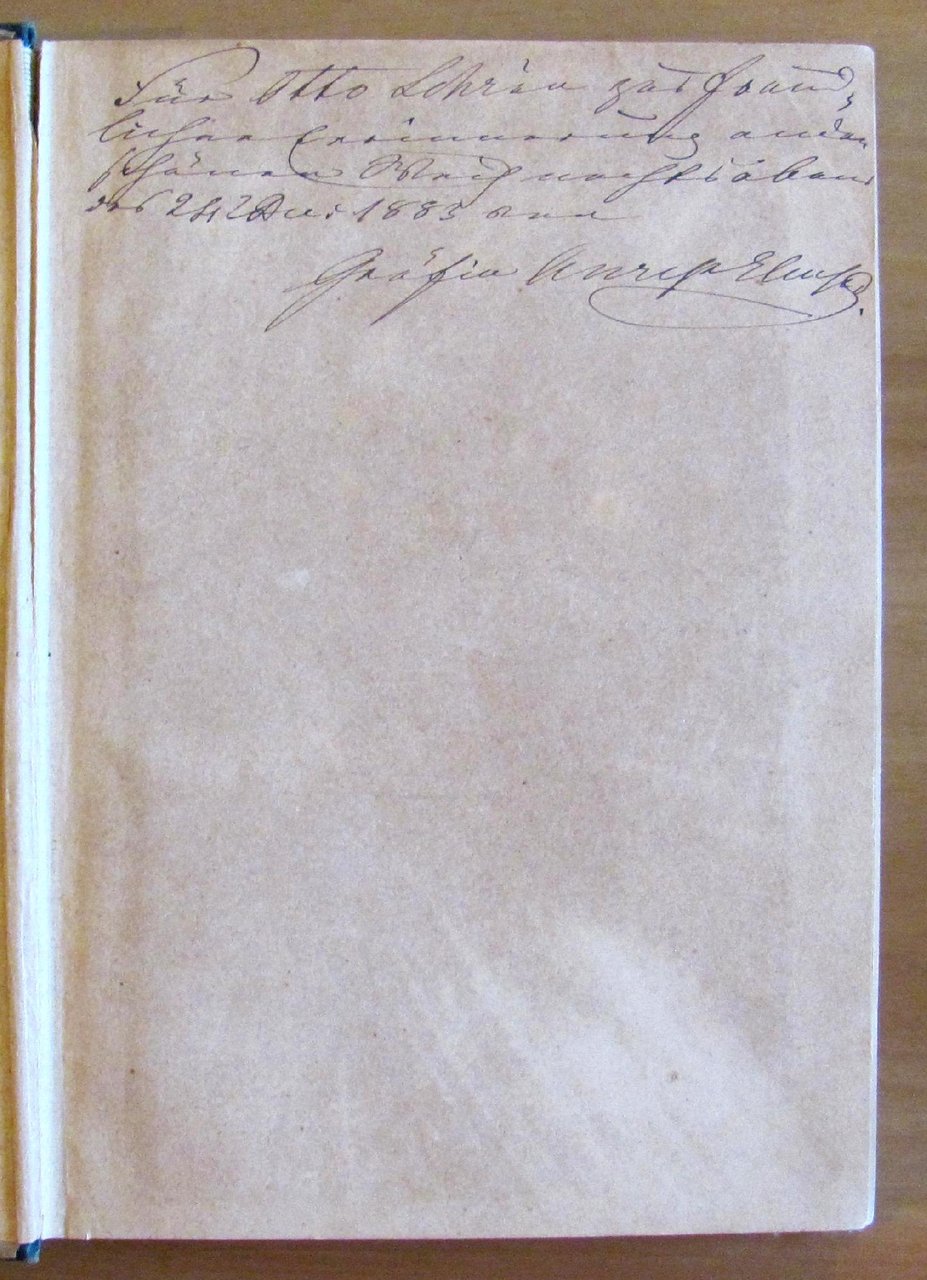 Für Otto Schrön zur freund-
lichen Erinnerung an den
schönen Weihnachtsabend
des 24 Dec: 1883 von
Gräfin Anrep Elmpt.